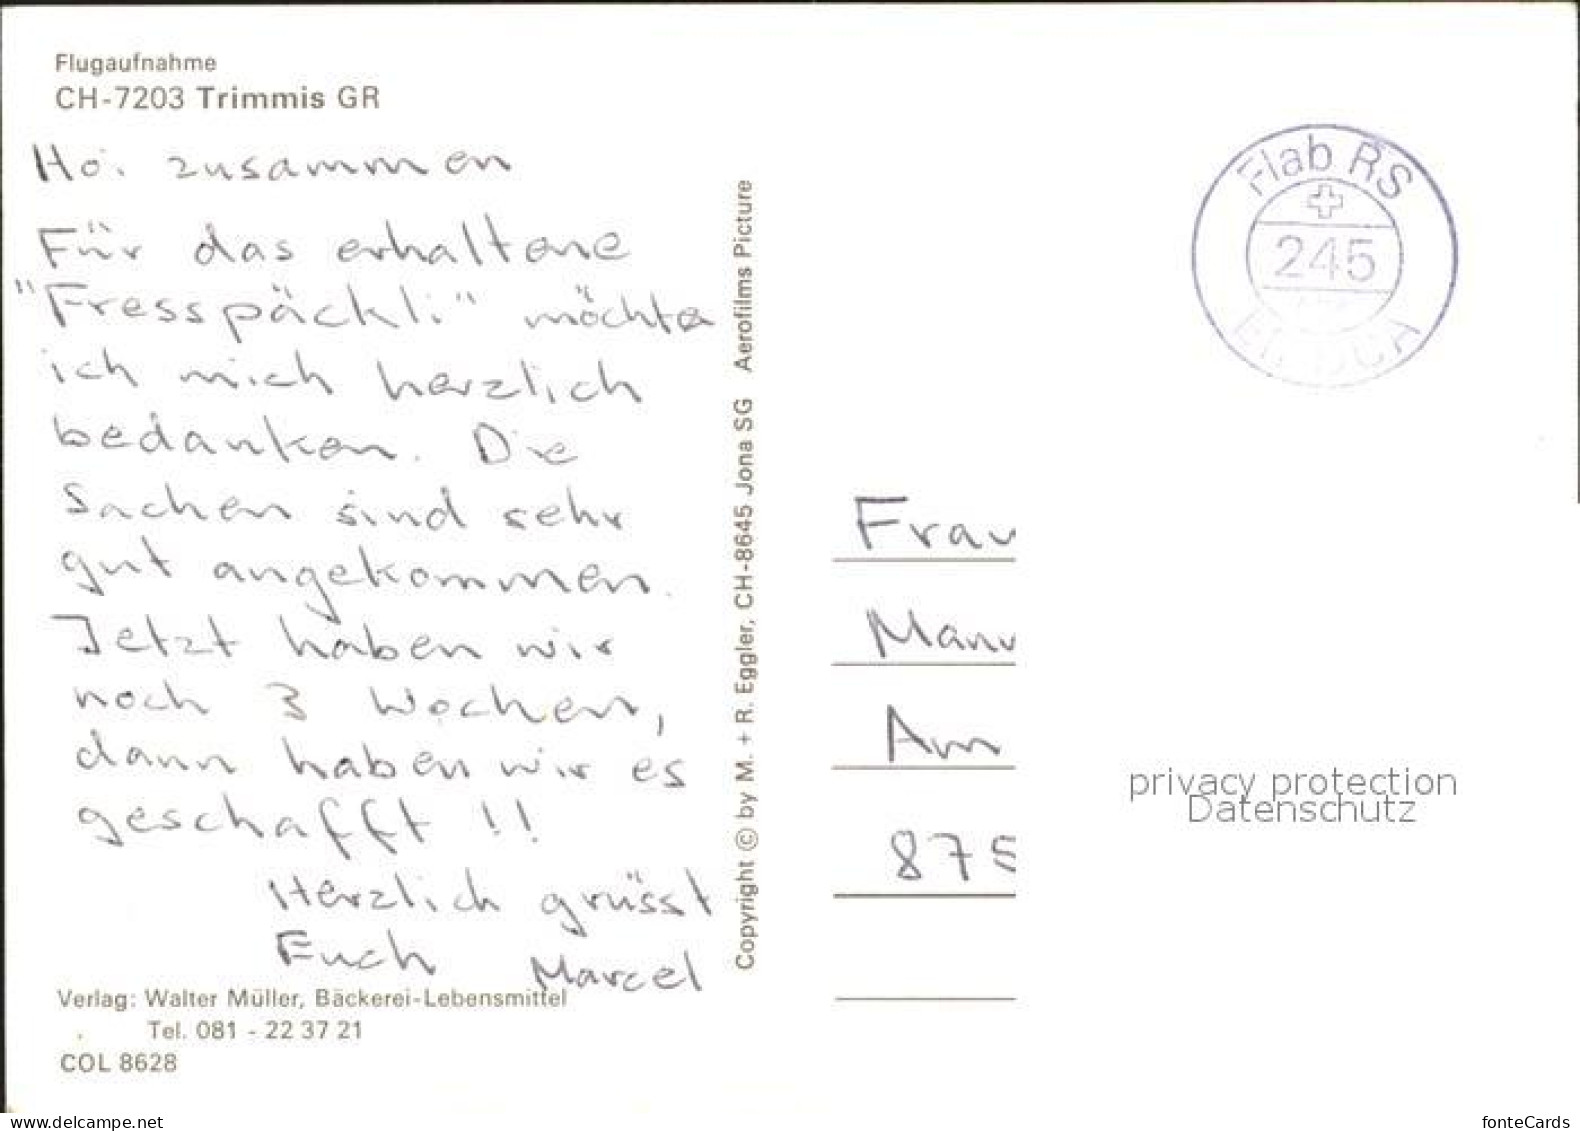 Flugaufnahme
CH-7203 Trimmis GR
Hoi zusammen
Für das erhaltene
"Fresspäckli" möchte
ich mich herzlich
bedanken. Die
Sachen sind sehr
gut angekommen.
Jetzt haben wir
noch 3 Wochen,
dann haben wir es
geschafft !!
Herzlich grüsst
Euch Marcel
Verlag: Walter Müller, Bäckerei-Lebensmittel
Tel. 081 - 22 37 21
COL 8628
Copyright © by M. + R. Eggler, CH-8645 Jona SG Aerofilms Picture
Flab RS
245
Frau
Manu
Am
875
privacy protection
Datenschutz
www.delcampe.net
fonteCards